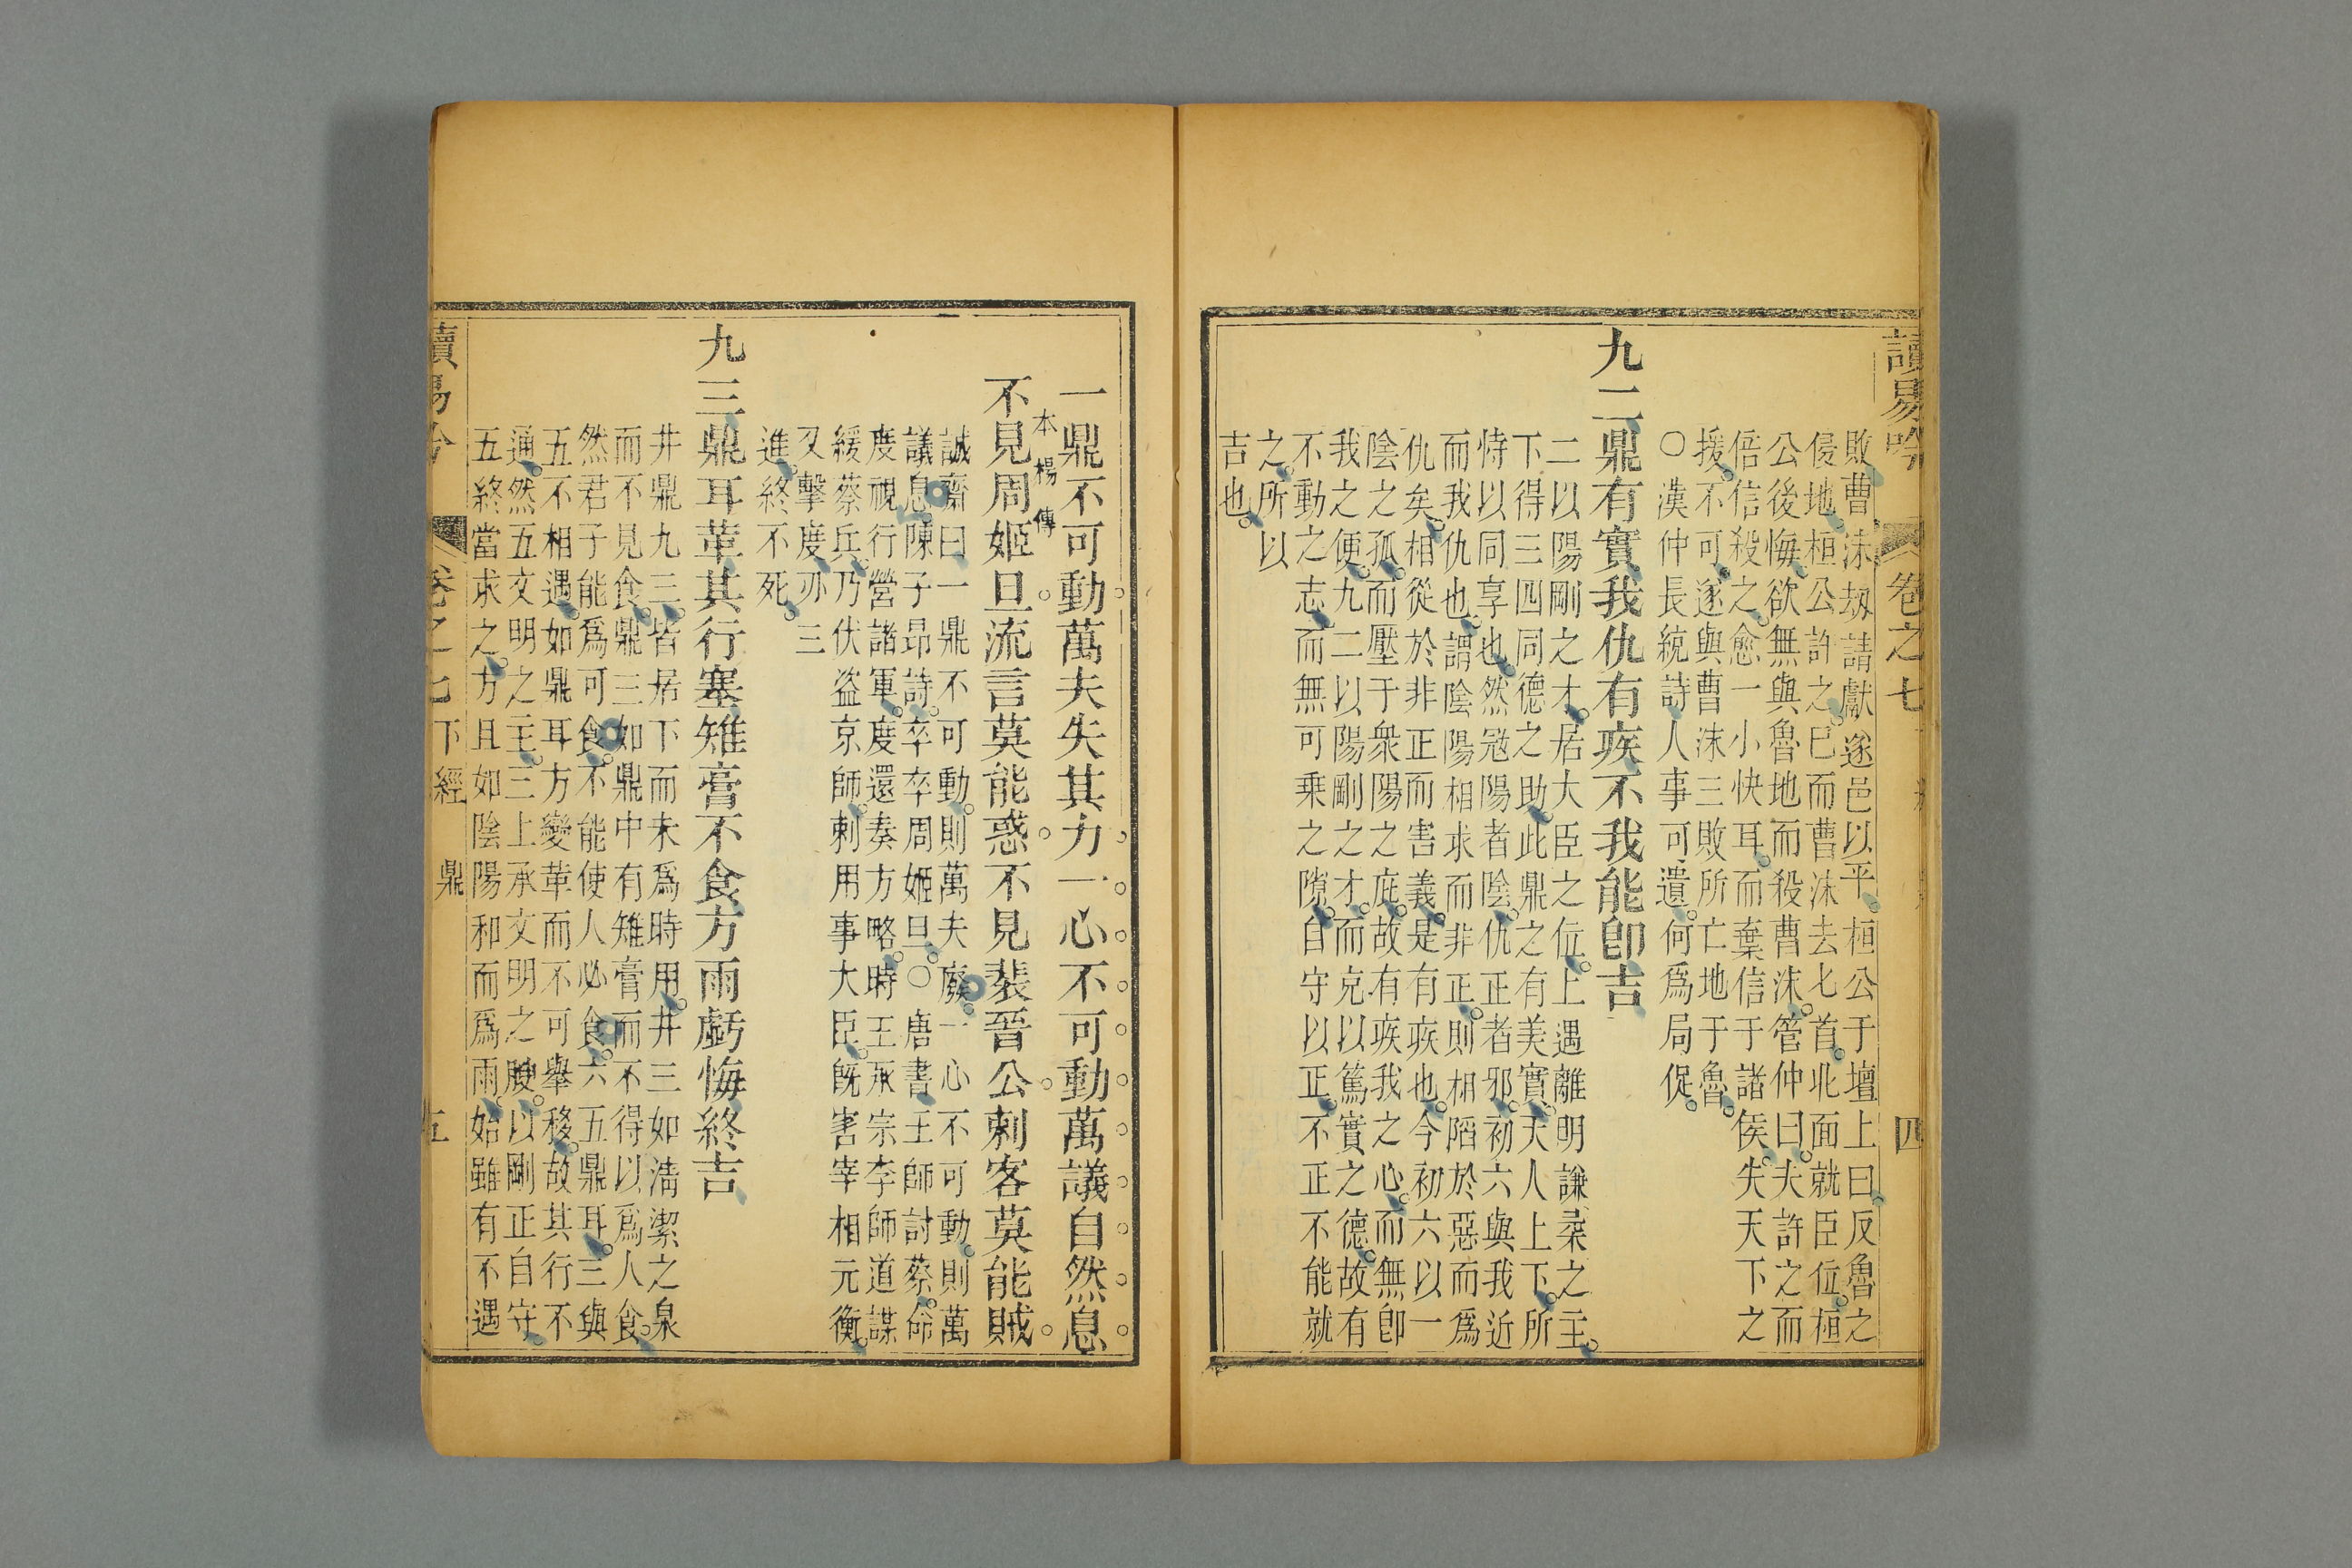 讀易吟 卷之七 四
敗曹沫劫請獻遂邑以平桓公于壇上曰反魯之
侵地桓公許之已而曹沫去匕首北面就臣位桓
公後悔欲無與魯地而殺曹沫管仲曰夫許之而
倍信殺之愈一小快耳而棄信于諸侯失天下之
援不可遂與曹沫三敗所亡地于魯
○漢仲長統詩人事可遺何爲局促
九二鼎有實我仇有疾不我能卽吉
二以陽剛之才居大臣之位上遇離明謙柔之主
下得三四同德之助此鼎之有美實大人上下所
恃以同享也然冠陽者陰仇正者邪初六與我近
而我仇也謂陰陽相求而非正則相陷於惡而爲
仇矣相從於非正而害義是有疾也今初六以一
陰之孤而壓于衆陽之庭故有疾我之心而無卽
我之便九二以陽剛之才而克以篤實之德故有
不動之志而無可乗之隙自守以正不正不能就
之所以
吉也
一鼎不可動萬夫失其力一心不可動萬議自然息
本楊傳
不見周姬旦流言莫能惑不見裴晉公刺客莫能賊
誠齋曰一鼎不可動則萬夫廢一心不可動則萬
議息陳子昂詩卒卒周姬旦○唐書王師討蔡命
度視行營諸軍度還奏方略時王承宗李師道謀
緩蔡兵乃伏盗京師刺用事大臣旣害宰相元衡
又擊度刅三
進終不死
九三鼎耳革其行塞雉膏不食方雨虧悔終吉
井鼎九三皆居下而未爲時用井三如清潔之泉
而不見食鼎三如鼎中有雉膏而不得以爲人食
然君子能爲可食不能使人必食六五鼎耳三與
五不相遇如鼎耳方變革而不可舉移故其行不
通然五文明之主三上承文明之腴以剛正自守
五終當求之方且如陰陽和而爲雨始雖有不遇
讀易吟 卷之七 下經 鼎 五